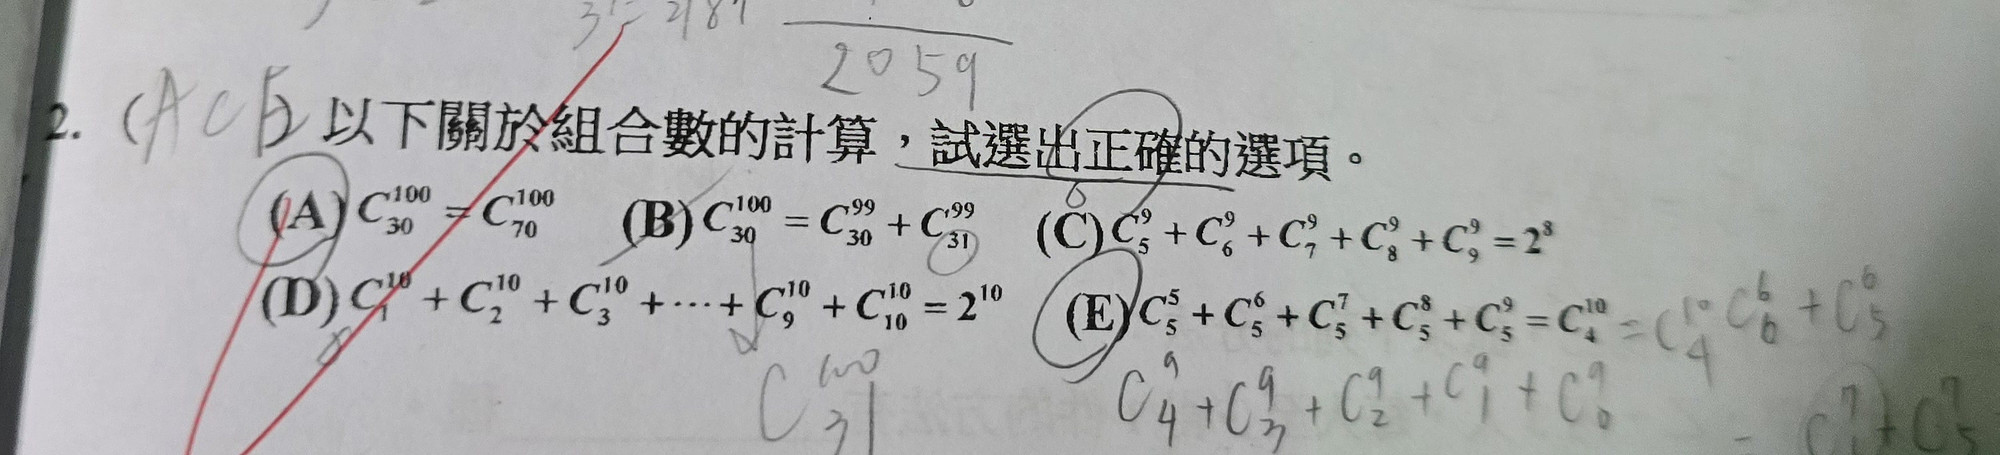 3⁷= 2187
2059
2. (ACE) 以下關於組合數的計算，試選出正確的選項。
(A) C₃₀¹⁰⁰ = C₇₀¹⁰⁰ (B) C₃₀¹⁰⁰ = C₃₀⁹⁹ + C₃₁⁹⁹ (C) C₅⁹ + C₆⁹ + C₇⁹ + C₈⁹ + C₉⁹ = 2⁸
(D) C₁¹⁰ + C₂¹⁰ + C₃¹⁰ + ⋯ + C₉¹⁰ + C₁₀¹⁰ = 2¹⁰ (E) C₅⁵ + C₅⁶ + C₅⁷ + C₅⁸ + C₅⁹ = C₄¹⁰ = C₄¹⁰ C₆⁶ + C₅⁶
C₃₁¹⁰⁰ C₄⁹ + C₃⁹ + C₂⁹ + C₁⁹ + C₀⁹